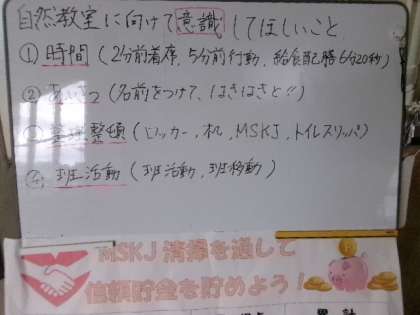 自然教室に向けて意識してほしいこと
① 時間（2分前着席、5分前行動、給食配膳6分20秒）
② あいさつ（名前をつけて、はきはきと!!）
③ 整理整頓（ロッカー、机、MSKJ、トイレスリッパ）
④ 班活動（班活動、班移動）
MSKJ 清掃を通して
信頼貯金を貯めよう!
累計